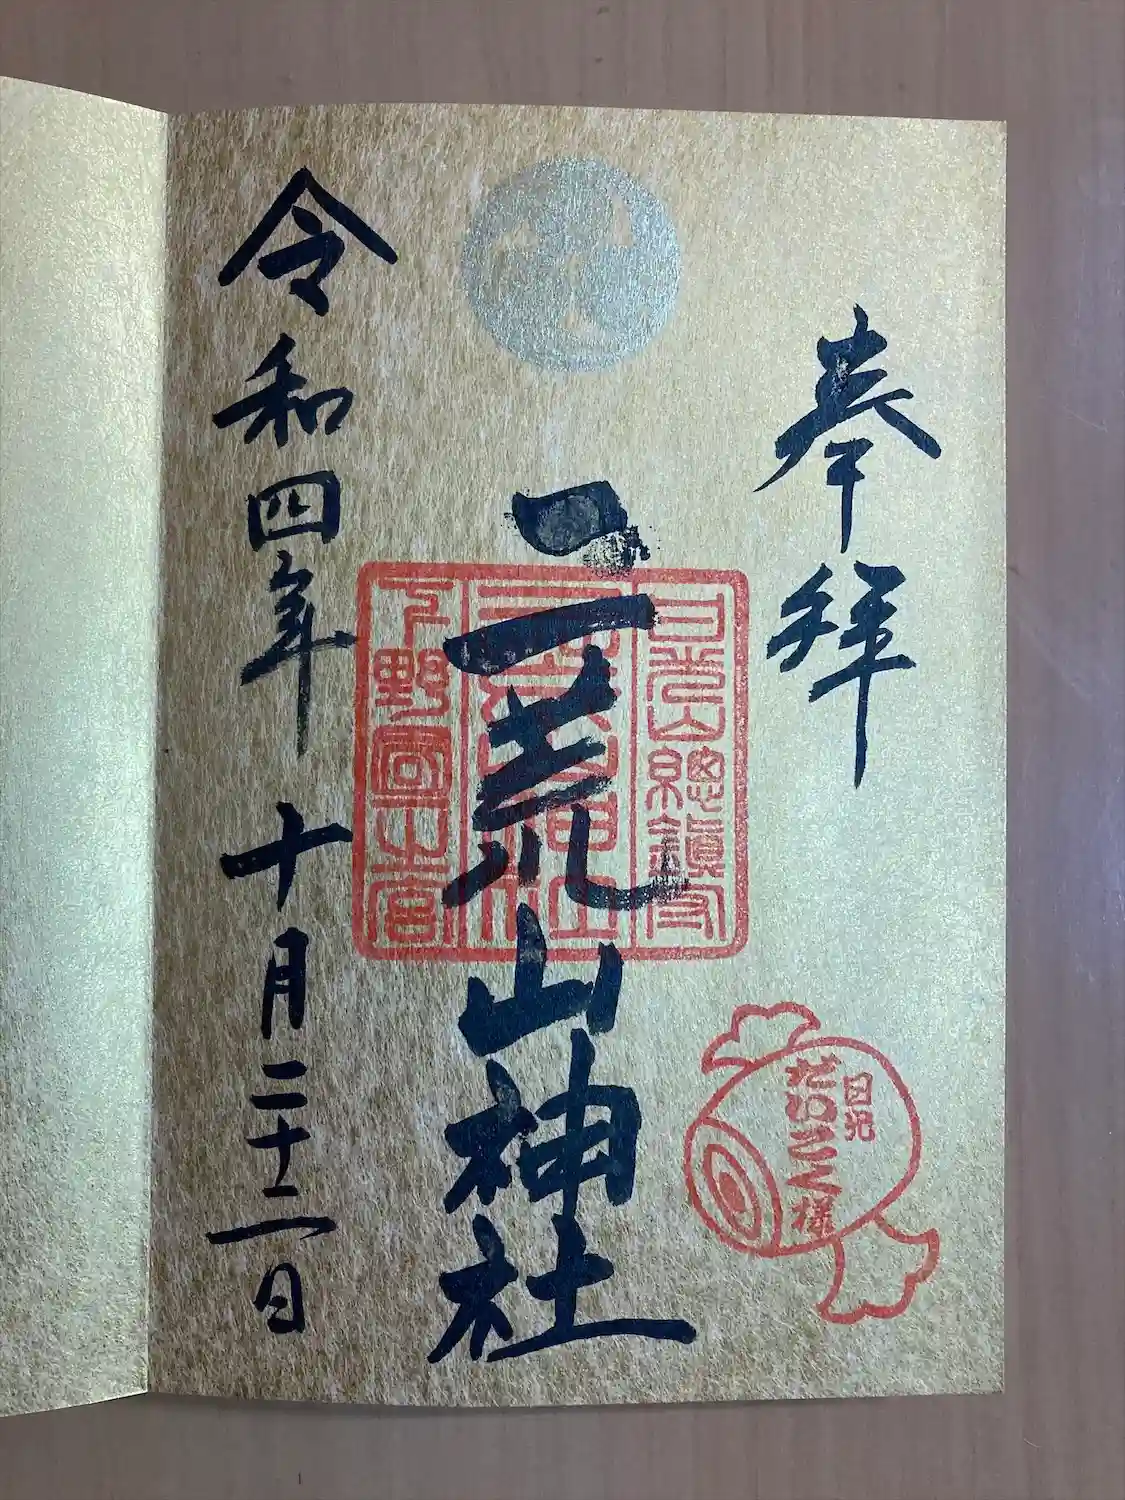 奉拝
二荒山神社
令和四年 十月二十二日
日光山總鎮守
二荒山神社
下野國一宮
日光
だいこく様